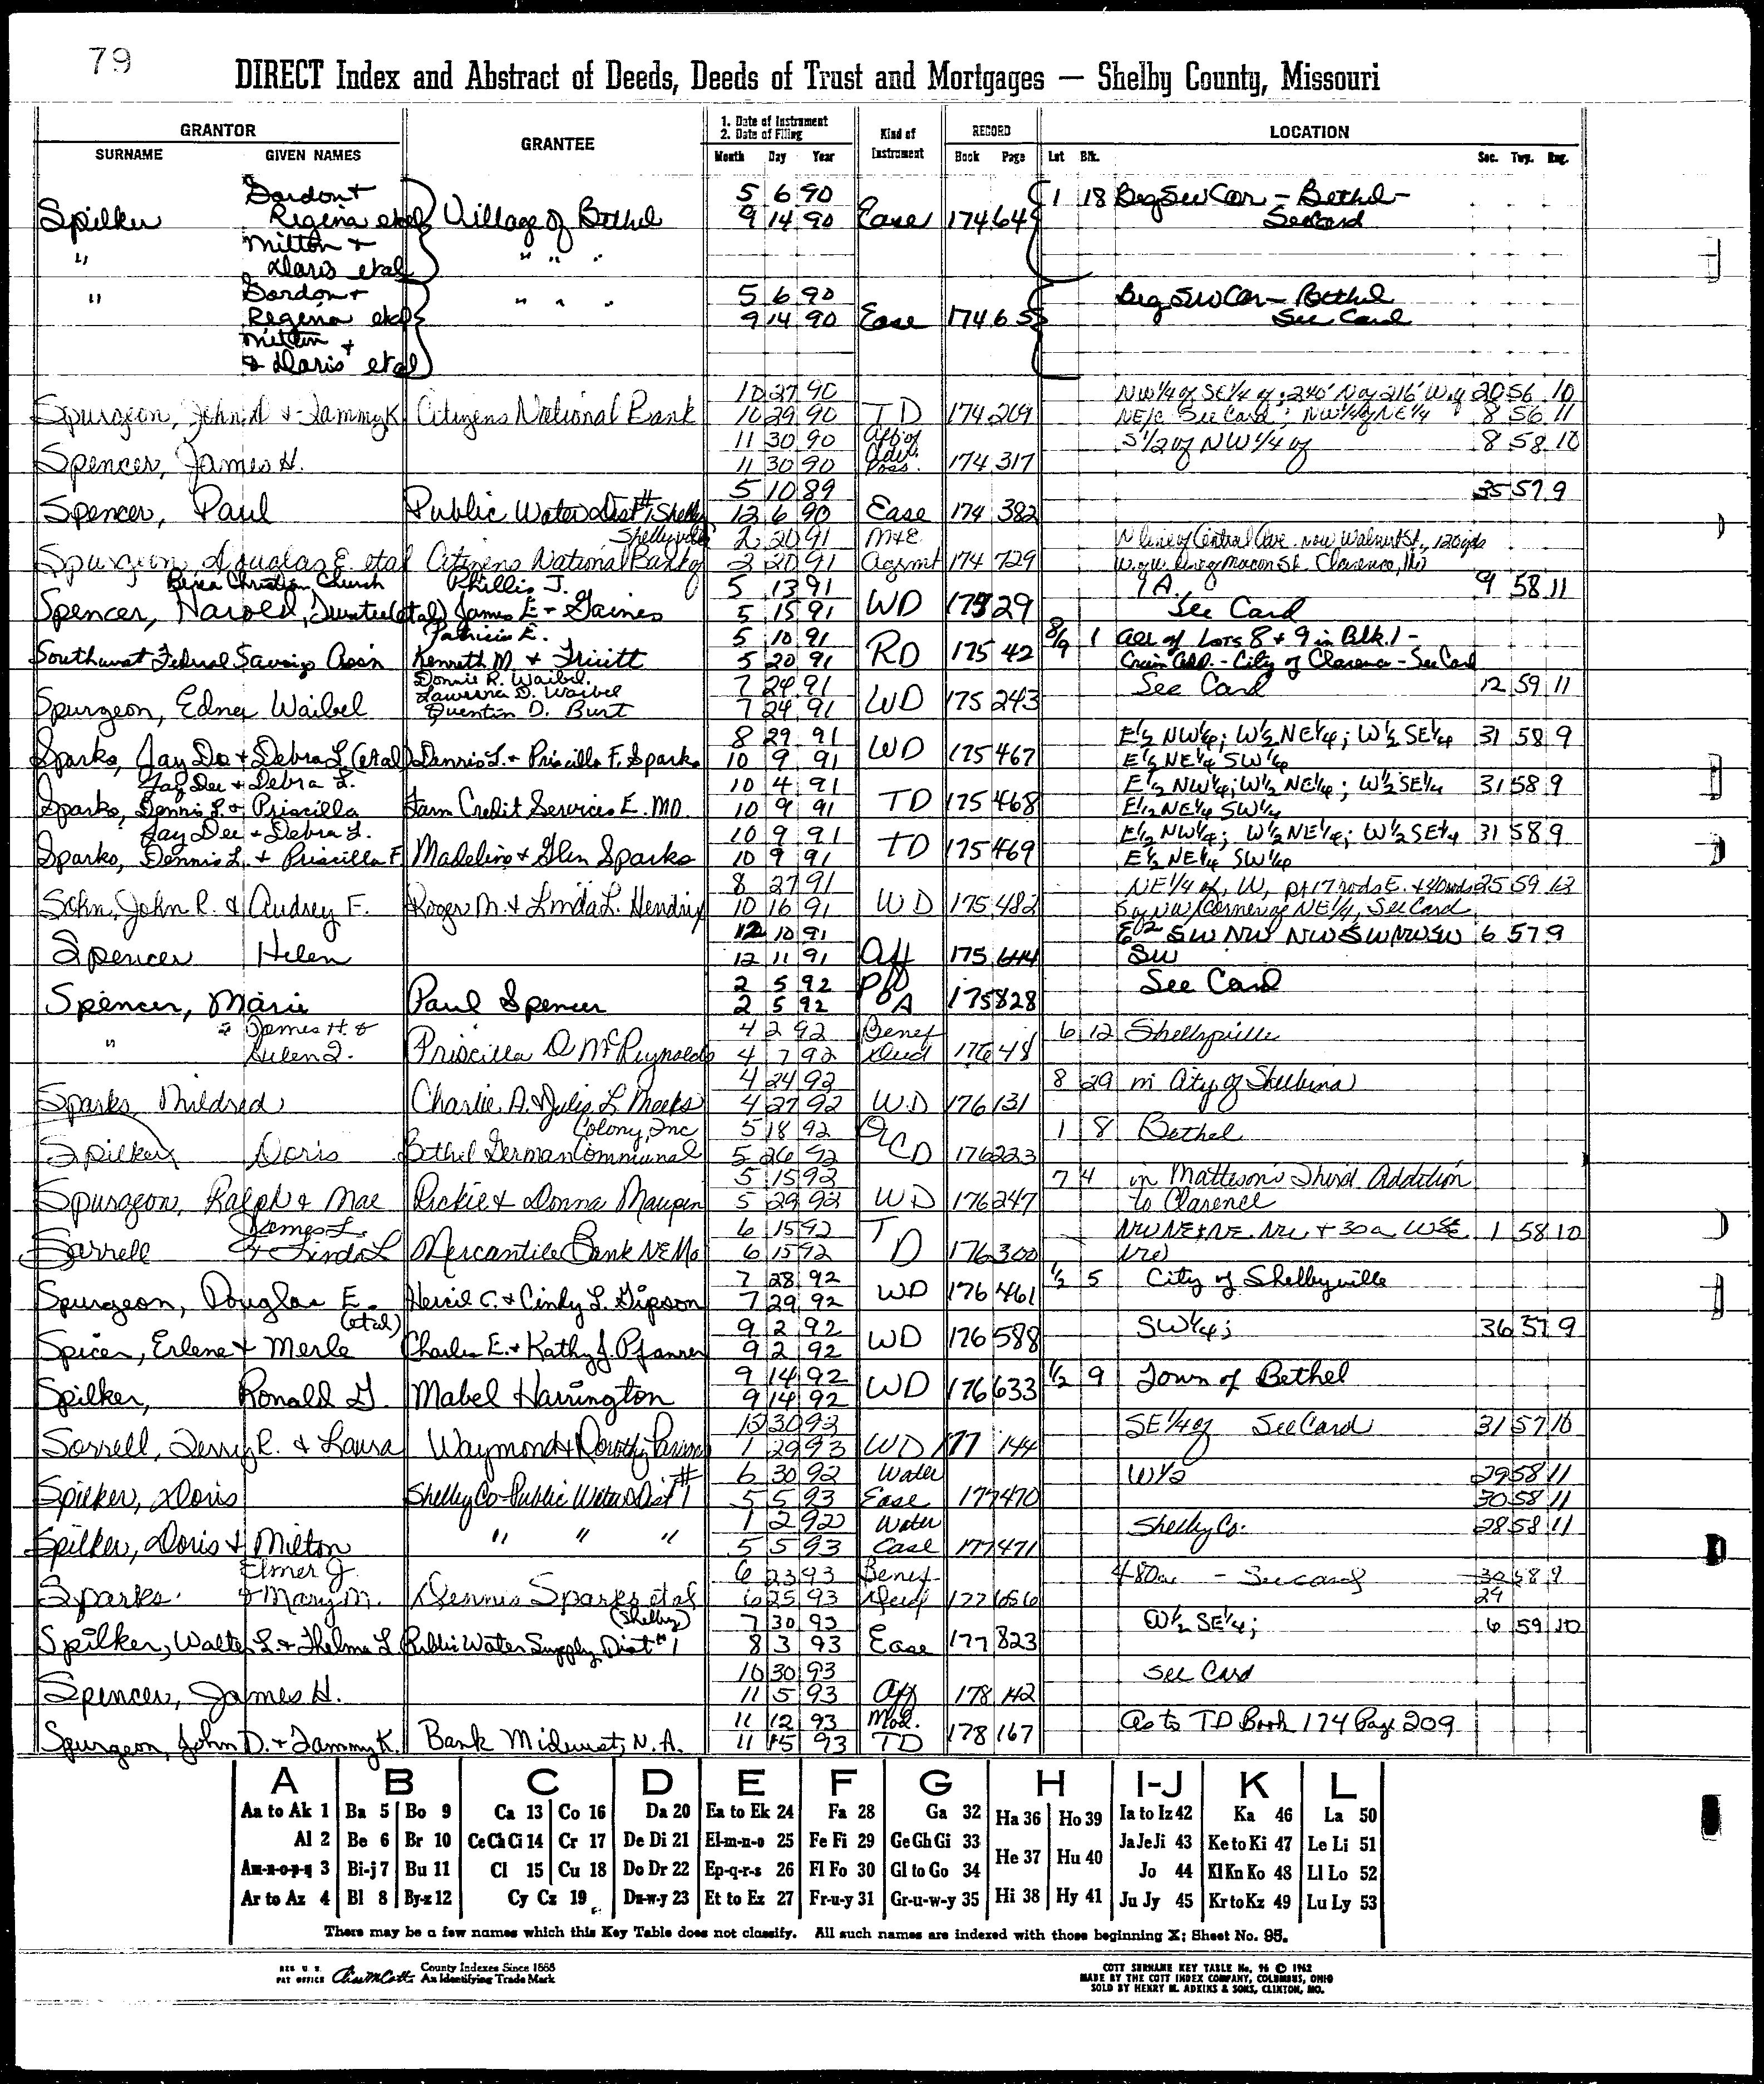 79
DIRECT Index and Abstract of Deeds, Deeds of Trust and Mortgages — Shelby County, Missouri
GRANTOR GRANTEE 1. Date of Instrument 2. Date of Filing Kind of Instrument RECORD LOCATION
SURNAME GIVEN NAMES Month Day Year Book Page Lot Blk. Sec. Twp. Rng.
Gordon + 5 6 90 1 18 Beg SW Cor - Bethel -
Spilker Regina etal Village of Bethel 9 14 90 Ease 174 64 See Card
Milton +
" Doris etal " " "
" Gordon + " " " 5 6 90 Beg SW Cor - Bethel
Regina etal 9 14 90 Ease 174 65 See Card
Milton +
& Doris etal
10 27 90 NW 1/4 of SE 1/4 of; 240' N of 216' W of 20 56 10
Spurgeon, John D + Tammy K Citizens National Bank 10 29 90 TD 174 209 NE/c See Card; NW 1/4 of NE 1/4 8 56 11
11 30 90 Aff of S 1/2 of NW 1/4 of 8 58 10
Spencer, James H. 11 30 90 Adv. Poss. 174 317
5 10 89 35 57 9
Spencer, Paul Public Water Dist #1 Shelby 12 6 90 Ease 174 382
Shelbyville 2 20 91 M+E N line of Central Ave. now Walnut St., 120 yds
Spurgeon, Douglas E. etal Citizens National Bank of 2 20 91 Agrmt 174 729 W of W line of Macon St. Clarence, Mo
Berea Christian Church Phillis J. 5 13 91 9 A. 9 58 11
Spencer, Harold, Trustee (etal) James E + Gaines 5 15 91 WD 175 29 See Card
Patricia E. 5 10 91 8/9 1 All of Lots 8 + 9 in Blk. 1 -
Southwest Federal Savings Assn Kenneth M. + Truitt 5 20 91 RD 175 42 Crain Add. - City of Clarence - See Card
Donnie R. Waibel 7 24 91 See Card 12 59 11
Lawerna D. Waibel
Spurgeon, Edna Waibel Quentin D. Burt 7 24 91 WD 175 243
8 29 91 E½ NW¼; W½ NE¼; W½ SE¼ 31 58 9
Sparks, Jay De + Debra L (etal) Dennis L. + Priscilla F. Sparks 10 9 91 WD 175 467 E½ NE¼ SW¼
Jay Dee + Debra L. 10 4 91 E½ NW¼; W½ NE¼; W½ SE¼ 31 58 9
Sparks, Dennis L. + Priscilla Farm Credit Services E. MO. 10 9 91 TD 175 468 E½ NE¼ SW¼
Jay Dee + Debra L. 10 9 91 E½ NW¼; W½ NE¼; W½ SE¼ 31 58 9
Sparks, Dennis L. + Priscilla F Madeline + Glen Sparks 10 9 91 TD 175 469 E½ NE¼ SW¼
8 27 91 NE 1/4 of, W, pt 17 rods E. + 40 rods 25 59 12
Sohn, John R. & Audrey F. Roger M. + Linda L. Hendrix 10 16 91 WD 175 482 S of NW/Corner of NE 1/4, See Card
12 10 91 SW NW NW SW NW SW 6 57 9
Spencer Helen 12 11 91 Aff 175 644 SW
2 5 92 See Card
Spencer, Marie Paul Spencer 2 5 92 P of A 175 828
James H. & 4 2 92 Benef 6 12 Shelbyville
" Helen I. Priscilla D McReynolds 4 7 92 Deed 176 48
4 24 92 8 29 in City of Shelbina
Sparks Mildred Charlie A. & Julia L Meeks 4 27 92 W.D 176 131
Colony, Inc 5 18 92 1 8 Bethel
Spilker Doris Bethel German Communal 5 26 92 QCD 176 223
5 15 92 7 4 in Matteson's Third Addition
Spurgeon, Ralph & Mae Rickie & Donna Maupin 5 29 92 WD 176 247 to Clarence
James L. 6 15 92 NW NE & NE NW + 30a W SE 1 58 10
Sarrell + Linda L Mercantile Bank NE Mo 6 15 92 TD 176 300 NW
7 28 92 1/2 5 City of Shelbyville
Spurgeon, Douglas E. Hercil C. + Cindy L. Gipson 7 29 92 WD 176 461
(etal) 9 2 92 SW¼; 36 57 9
Spicer, Erlene + Merle Charles E. + Kathy J. Pfanner 9 2 92 WD 176 588
9 14 92 1/2 9 Town of Bethel
Spilker, Ronald G. Mabel Harrington 9 14 92 WD 176 633
30 92 SE 1/4 of See Card 31 57 10
Sorrell, Terry R. & Laura Waymond & Dorothy 1 29 93 WD 177 144
6 30 92 Water W 1/2 29 58 11
Spilker, Doris Shelby Co Public Water Dist #1 5 5 93 Ease 177 470 30 58 11
1 2 92 Water Shelby Co. 28 58 11
Spilker, Doris & Milton " " " 5 5 93 Ease 177 471
Elmer J. 6 23 93 Benef 480a - See card 30 58 9
Sparks & Mary M. Dennis Sparks etal 6 25 93 Deed 177 656 24
(Shelby) 7 30 93 W½ SE¼; 6 59 10
Spilker, Walter L. + Thelma L Public Water Supply Dist #1 8 3 93 Ease 177 823
10 30 93 See Card
Spencer, James H. 11 5 93 Aff 178 142
11 12 93 Mod. As to TD Book 174 Page 209
Spurgeon, John D. + Tammy K. Bank Midwest, N.A. 11 15 93 TD 178 167
A B C D E F G H I-J K L
Aa to Ak 1 Ba 5 Bo 9 Ca 13 Co 16 Da 20 Ea to Ek 24 Fa 28 Ga 32 Ha 36 Ho 39 Ia to Iz 42 Ka 46 La 50
Al 2 Be 6 Br 10 Ce Ch Ci 14 Cr 17 De Di 21 El-m-n-o 25 Fe Fi 29 Ge Gh Gi 33 He 37 Hu 40 Ja Je Ji 43 Ke to Ki 47 Le Li 51
Am-n-o-p-q 3 Bi-j 7 Bu 11 Cl 15 Cu 18 Do Dr 22 Ep-q-r-s 26 Fl Fo 30 Gl to Go 34 Jo 44 Kl Kn Ko 48 Ll Lo 52
Ar to Az 4 Bl 8 By-z 12 Cy Cz 19 Du-w-y 23 Et to Ez 27 Fr-u-y 31 Gr-u-w-y 35 Hi 38 Hy 41 Ju Jy 45 Kr to Kz 49 Lu Ly 53
There may be a few names which this Key Table does not classify. All such names are indexed with those beginning X; Sheet No. 95.
REG U. S. PAT OFFICE County Indexes Since 1888 An Identifying Trade Mark
COTT SURNAME KEY TABLE No. 96 © 1962
MADE BY THE COTT INDEX COMPANY, COLUMBUS, OHIO
SOLD BY HENRY M. ADKINS & SONS, CLINTON, MO.